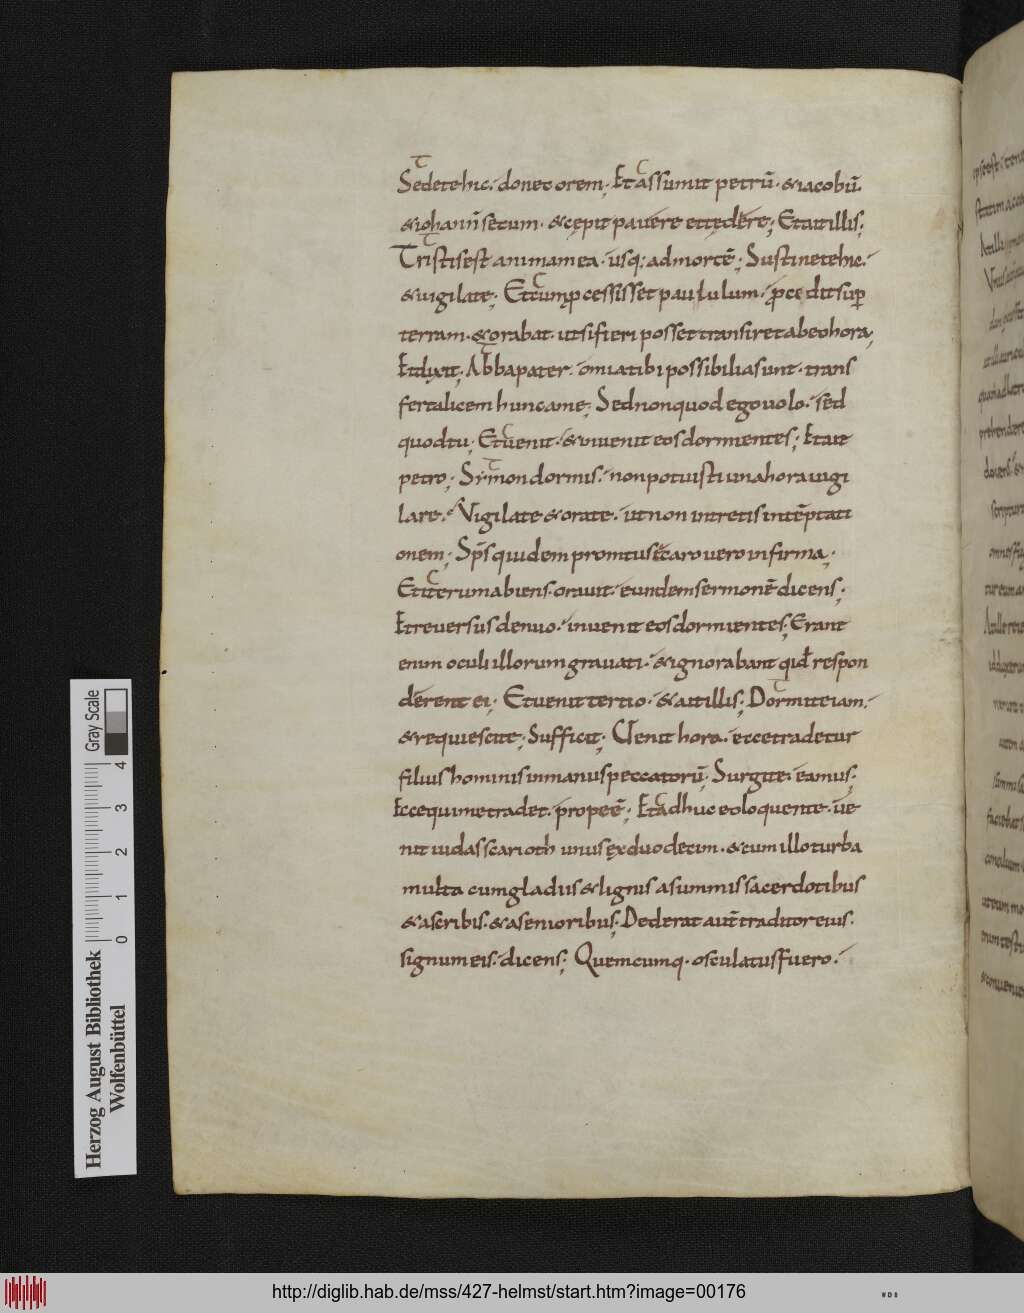 Sedete hic. donec orem. Et assumit petrū. & iacobū.
& iohannē secum. & cępit pavere et tędere; Et ait illis;
Tristis est anima mea. usq; ad mortē; Sustinete hic.
& vigilate; Et cum pcessisset paululum. procedit sup
terram. & orabat. ut si fieri posset transiret ab eo hora;
Et dixit; Abba pater. omia tibi possibilia sunt. trans
fer calicem hunc a me; Sed non quod ego volo. sed
quod tu; Et venit. & invenit eos dormientes; Et ait
petro; Symon dormis. non potuisti una hora vigi
lare. Vigilate & orate. ut non intretis in tēptati
onem; Sps quidem promtus. caro vero infirma;
Et iterum abiens. oravit. eundem sermonē dicens;
Et reversus denuo. invenit eos dormientes; Erant
enim oculi illorum gravati. & ignorabant qid respon
derent ei; Et venit tertio. & ait illis; Dormite iam.
& requiescite; Sufficit; Venit hora. ecce tradetur
filius hominis in manus peccatorū; Surgite. eamus;
Ecce qui me tradet. prope ē; Et adhuc eo loquente. ve
nit iudas scarioth unus ex duodecim. & cum illo turba
multa cum gladiis & lignis a summis sacerdotibus
& a scribis. & a senioribus; Dederat autē traditor eius.
signum eis. dicens; Quemcumq. osculatus fuero.
Herzog August Bibliothek
Wolfenbüttel
0 1 2 3 4
Gray Scale
http://diglib.hab.de/mss/427-helmst/start.htm?image=00176